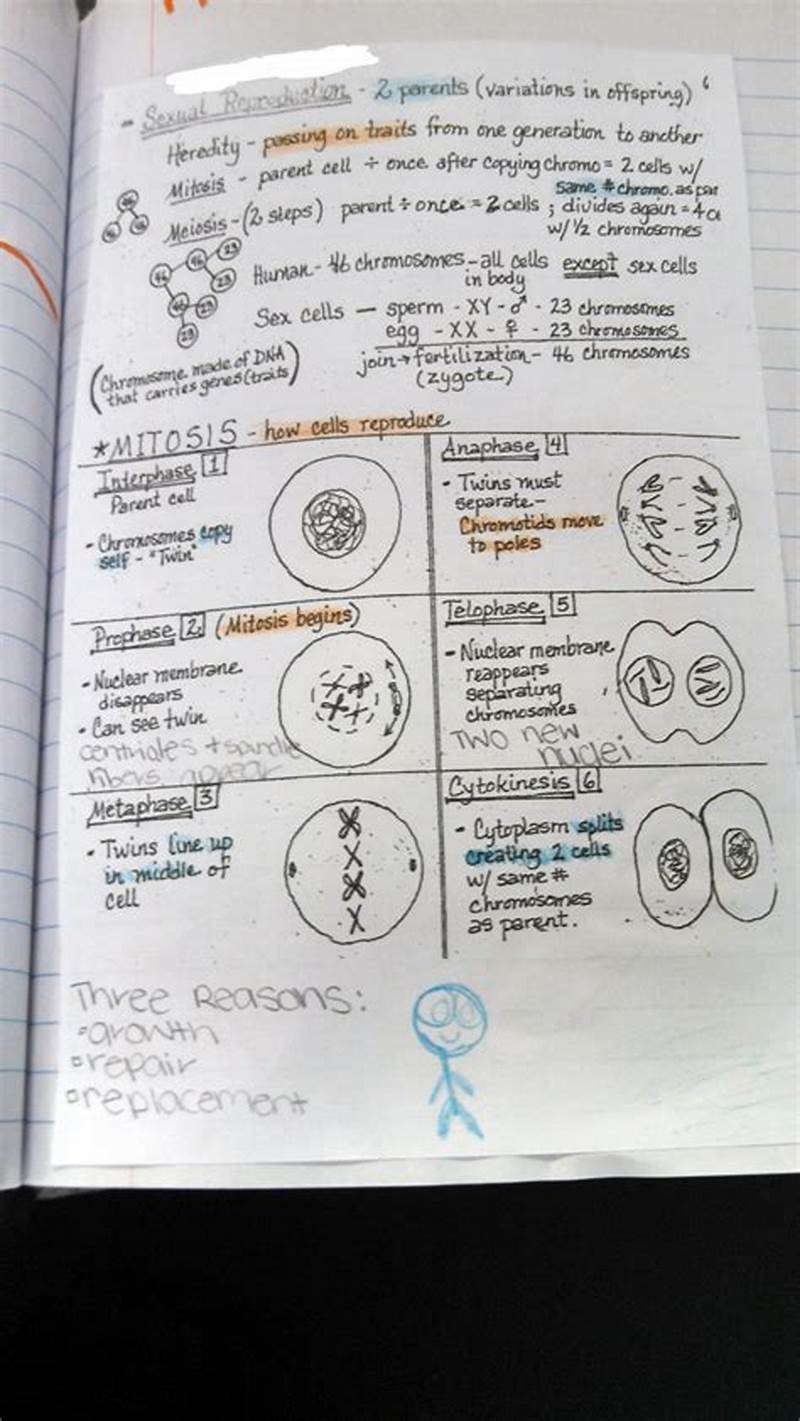 - Sexual Reproduction - 2 parents (variations in offspring)
Heredity - passing on traits from one generation to another
Mitosis - parent cell ÷ once after copying chromo = 2 cells w/
same # chromo. as par
46
46 46
Meiosis - (2 steps) parent ÷ once = 2 cells ; divides again = 4 ce
w/ 1/2 chromosomes
46 46 23
23
46 23
23
Human - 46 chromosomes - all cells except sex cells
in body
Sex cells — sperm - XY - ♂ - 23 chromosomes
egg - XX - ♀ - 23 chromosomes
join → fertilization - 46 chromosomes
(zygote)
(Chromosome made of DNA
that carries genes (traits)
*MITOSIS - how cells reproduce
Interphase 1
Parent cell
- Chromosomes copy
self - "Twin"
Prophase 2 (Mitosis begins)
- Nuclear membrane
disappears
• Can see twin
centrioles + spindle
fibers appear
Metaphase 3
• Twins line up
in middle of
cell
Anaphase 4
• Twins must
separate -
Chromotids move
to poles
Telophase 5
- Nuclear membrane
reappears
separating
chromosomes
TWO new
nuclei
Cytokinesis 6
- Cytoplasm splits
creating 2 cells
w/ same #
chromosomes
as parent.
Three Reasons:
▫growth
▫repair
▫replacement